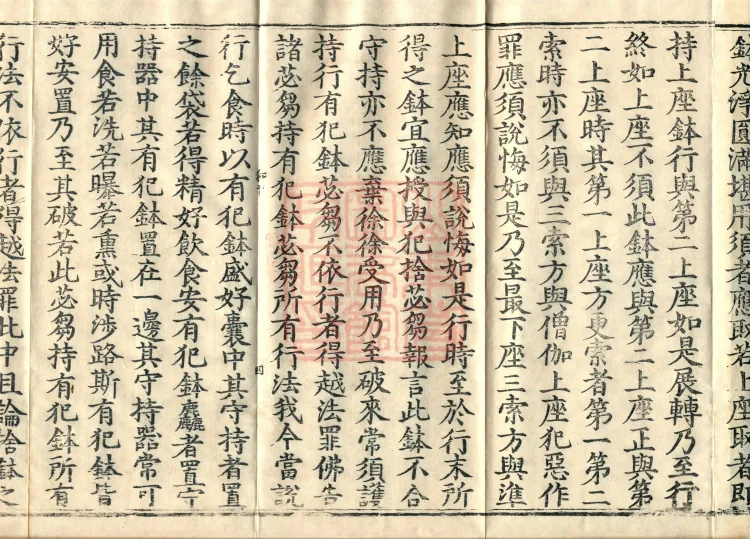 鉢光淨圓滿堪用須者應取若上座取者即
持上座鉢行與第二上座如是展轉乃至行
終如上座不須此鉢應與第二上座正與第
二上座時其第一上座方更索者第一第二
索時亦不須與三索方與僧伽上座犯惡作
罪應須說悔如是乃至最下座三索方與準
上座應知應須說悔如是行時至於行末所
得之鉢宜應授與犯捨苾芻報言此鉢不合
守持亦不應棄徐徐受用乃至破來常須護
持行有犯鉢苾芻不依行者得越法罪佛告
諸苾芻持有犯鉢苾芻所有行法我今當說
行乞食時以有犯鉢盛好囊中其守持者置
之餘袋若得精好飲食安有犯鉢麤者置守
持器中其有犯鉢置在一邊其守持器常可
用食若洗若曝若熏或時涉路斯有犯鉢皆
好安置乃至其破若此苾芻持有犯鉢所有
行法不依行者得越法罪此中且論捨鉢之
和
四